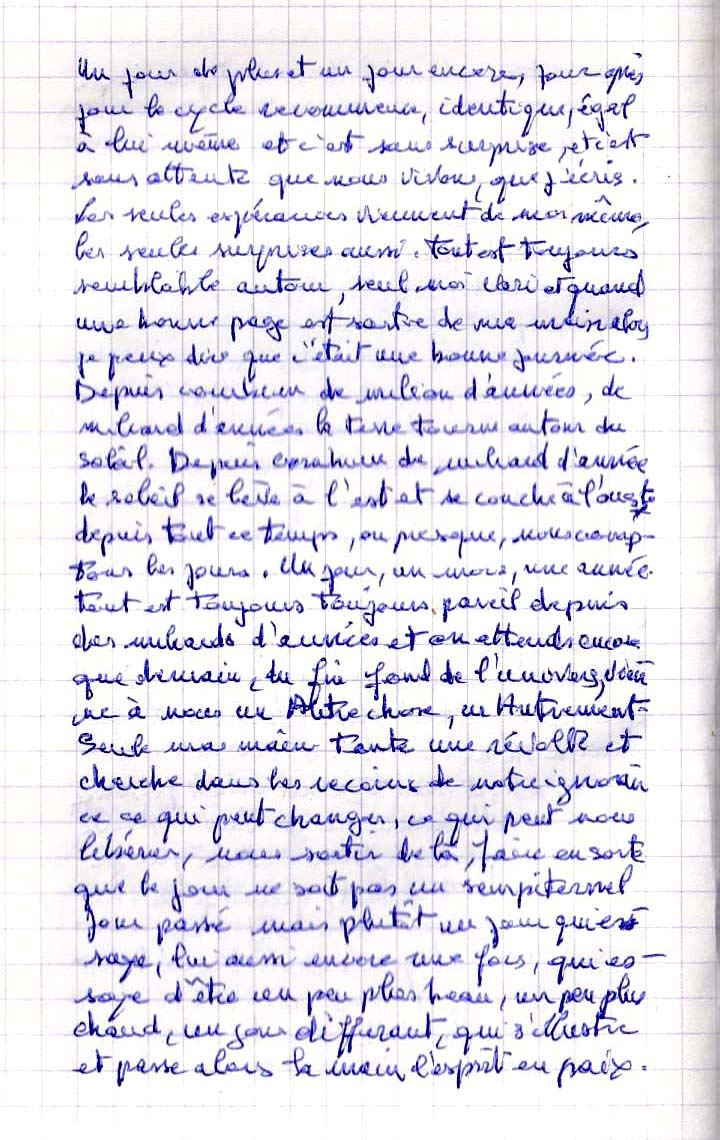 Un jour de plus et un jour encore, jour après
jour le cycle recommence, identique, égal
à lui même et c'est sans surprise, et c'est
sans attente que nous vivons, que j'écris.
Les seules espérances viennent de moi même,
les seules surprises aussi. Tout est toujours
semblable autour, seul moi vari et quand
une bonne page est sortie de ma main alors
je peux dire que c'était une bonne journée.
Depuis combien de million d'années, de
miliard d'années la terre tourne autour du
soleil. Depuis combien de miliard d'année
le soleil se lève à l'est et se couche à l'ouest
depuis tout ce temps, ou presque, nous comp-
tons les jours. Un jour, un mois, une année.
tout est toujours toujours pareil depuis
des miliards d'années et on attends encore
que demain, du fin fond de l'univers, vien
ne à nous un Autre chose, un Autrement.
Seule ma main tente une révolte et
cherche dans les recoins de notre ignoran
ce ce qui peut changer, ce qui peut nous
libérer, nous sortir de là, faire en sorte
que le jour ne soit pas un sempiternel
jour passé mais plutôt un jour qui es
saye, lui aussi encore une fois, qui es-
saye d'être un peu plus beau, un peu plus
chaud, un jour différant, qui s'illustre
et passe alors la main l'esprit en paix.